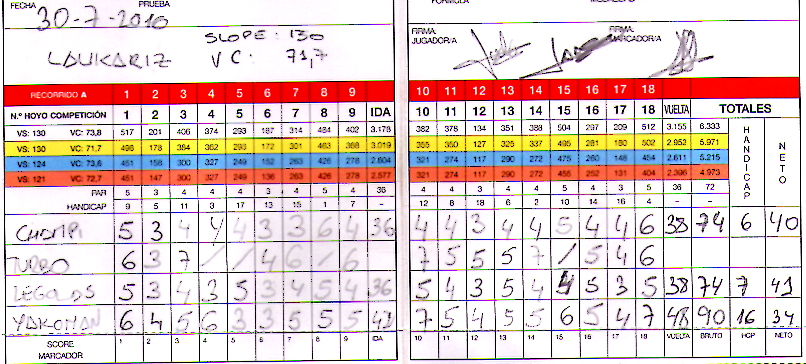 FECHA PRUEBA
30-7-2010
SLOPE: 130
LAUKARIZ VC: 71,7
FIRMA JUGADOR/A FIRMA MARCADOR/A
RECORRIDO A 1 2 3 4 5 6 7 8 9 10 11 12 13 14 15 16 17 18
N.º HOYO COMPETICIÓN 1 2 3 4 5 6 7 8 9 IDA 10 11 12 13 14 15 16 17 18 VUELTA TOTALES
VS: 130 VC: 73,8 517 201 406 374 293 187 314 484 402 3.178 382 378 134 351 388 504 297 209 512 3.155 6.333
VS: 130 VC: 71,7 496 178 384 362 293 172 301 463 368 3.019 355 350 127 325 337 495 281 180 502 2.952 5.971
VS: 124 VC: 73,6 451 158 300 327 249 152 263 476 278 2.604 321 274 117 290 272 475 260 148 454 2.611 5.215
VS: 121 VC: 72,7 451 147 300 327 249 136 263 426 278 2.577 321 274 117 290 272 455 252 131 404 2.396 4.973
HANDICAP NETO
PAR 5 3 4 4 4 3 4 5 4 36 4 4 3 4 4 5 4 3 5 36 72
HANDICAP 9 5 11 3 17 13 15 1 7 – 12 8 18 6 2 10 14 16 4 – –
5 3 4 4 4 3 3 6 4 36 4 4 3 4 4 5 4 4 6 38 74 6 40
TURBO 6 3 7 / / 4 6 / 6 7 5 5 5 7 / 5 4 6
5 3 4 3 5 3 4 5 4 36 5 4 3 5 4 4 5 3 5 38 74 7 41
YAKOMAN 6 4 5 6 3 3 5 5 5 7 5 4 5 5 6 5 4 7 48 90 16 34
SCORE MARCADOR 1 2 3 4 5 6 7 8 9 IDA 10 11 12 13 14 15 16 17 18 VUELTA BRUTO HCP NETO